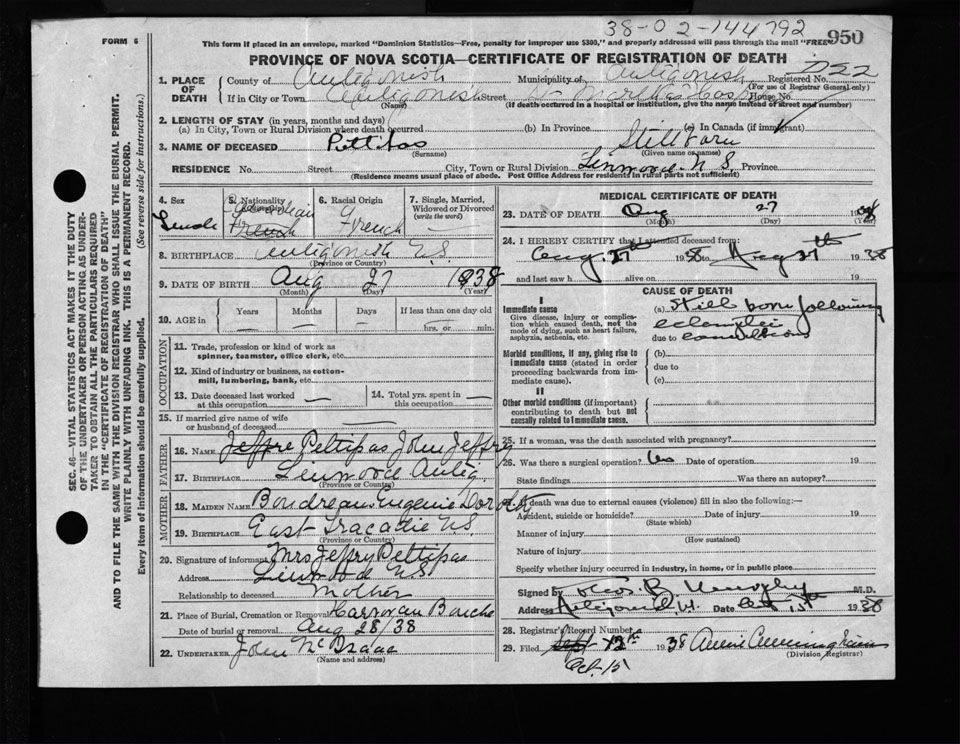 38-02-144792
FORM 6
This form if placed in an envelope, marked "Dominion Statistics—Free, penalty for improper use $300," and properly addressed will pass through the mail "FREE" 950
PROVINCE OF NOVA SCOTIA—CERTIFICATE OF REGISTRATION OF DEATH
1. PLACE OF DEATH County of Antigonish Municipality of Antigonish Registered No. 
(For use of Registrar General only)
If in City or Town Antigonish Street St Martha's Hosp House No.
(Name) (If death occurred in a hospital or institution, give the name instead of street and number)
2. LENGTH OF STAY (in years, months and days)
(a) In City, Town or Rural Division where death occurred (b) In Province (c) In Canada (if immigrant)
3. NAME OF DECEASED Pettipas Still born
(Surname) (Given name or names)
RESIDENCE No. Street City, Town or Rural Division Linwood N.S. Province
(Residence means usual place of abode. Post Office Address for residents in rural parts not sufficient)
4. Sex 5. Nationality 6. Racial Origin 7. Single, Married, Widowed or Divorced
(write the word)
Female Canadian French French
8. BIRTHPLACE Antigonish N.S.
(Province or Country)
9. DATE OF BIRTH Aug 27 1938
(Month) (Day) (Year)
10. AGE in Years Months Days If less than one day old
hrs. or min.
OCCUPATION
11. Trade, profession or kind of work as
spinner, teamster, office clerk, etc.
12. Kind of industry or business, as cotton-
mill, lumbering, bank, etc.
13. Date deceased last worked
at this occupation
14. Total yrs. spent in
this occupation
15. If married give name of wife
or husband of deceased
FATHER
16. NAME Jeffre Pettipas John Jeffrey
17. BIRTHPLACE Linwood Antig.
(Province or Country)
MOTHER
18. MAIDEN NAME Boudreau Eugenie Dorothy
19. BIRTHPLACE East Tracadie N.S.
(Province or Country)
20. Signature of informant Mrs Jeffry Pettipas
Address Linwood N.S.
Relationship to deceased Mother
21. Place of Burial, Cremation or Removal Harbour Bouche
Date of burial or removal Aug 28/38
22. UNDERTAKER John McIsaac
(Name and address)
MEDICAL CERTIFICATE OF DEATH
23. DATE OF DEATH Aug 27 1938
(Month) (Day)
24. I HEREBY CERTIFY that I attended deceased from:
Aug. 27th 1938 to Aug 27th 1938
and last saw h alive on 19
CAUSE OF DEATH
I
Immediate cause
Give disease, injury or complica-
tion which caused death, not the
mode of dying, such as heart failure,
asphyxia, asthenia, etc.
(a) Still born following
eclamptic
due to convulsions
Morbid conditions, if any, giving rise to
immediate cause (stated in order
proceeding backwards from im-
mediate cause).
(b)
due to
(c)
II
Other morbid conditions (if important)
contributing to death but not
causally related to immediate cause.
25. If a woman, was the death associated with pregnancy?
26. Was there a surgical operation? Date of operation 19
State findings Was there an autopsy?
27. If death was due to external causes (violence) fill in also the following:—
Accident, suicide or homicide? Date of injury 19
(State which)
Manner of injury
(How sustained)
Nature of injury
Specify whether injury occurred in industry, in home, or in public place
Signed by M.D.
Address Date Oct 15th 1938
28. Registrar's Record Number
29. Filed Sept 1938 Annie Cunningham
Oct. 15 (Division Registrar)
SEC. 46—VITAL STATISTICS ACT MAKES IT THE DUTY
OF THE UNDERTAKER OR PERSON ACTING AS UNDER-
TAKER TO OBTAIN ALL THE PARTICULARS REQUIRED
IN THE "CERTIFICATE OF REGISTRATION OF DEATH"
AND TO FILE THE SAME WITH THE DIVISION REGISTRAR WHO SHALL ISSUE THE BURIAL PERMIT.
WRITE PLAINLY WITH UNFADING INK. THIS IS A PERMANENT RECORD.
Every item of information should be carefully supplied. (See reverse side for instructions.)